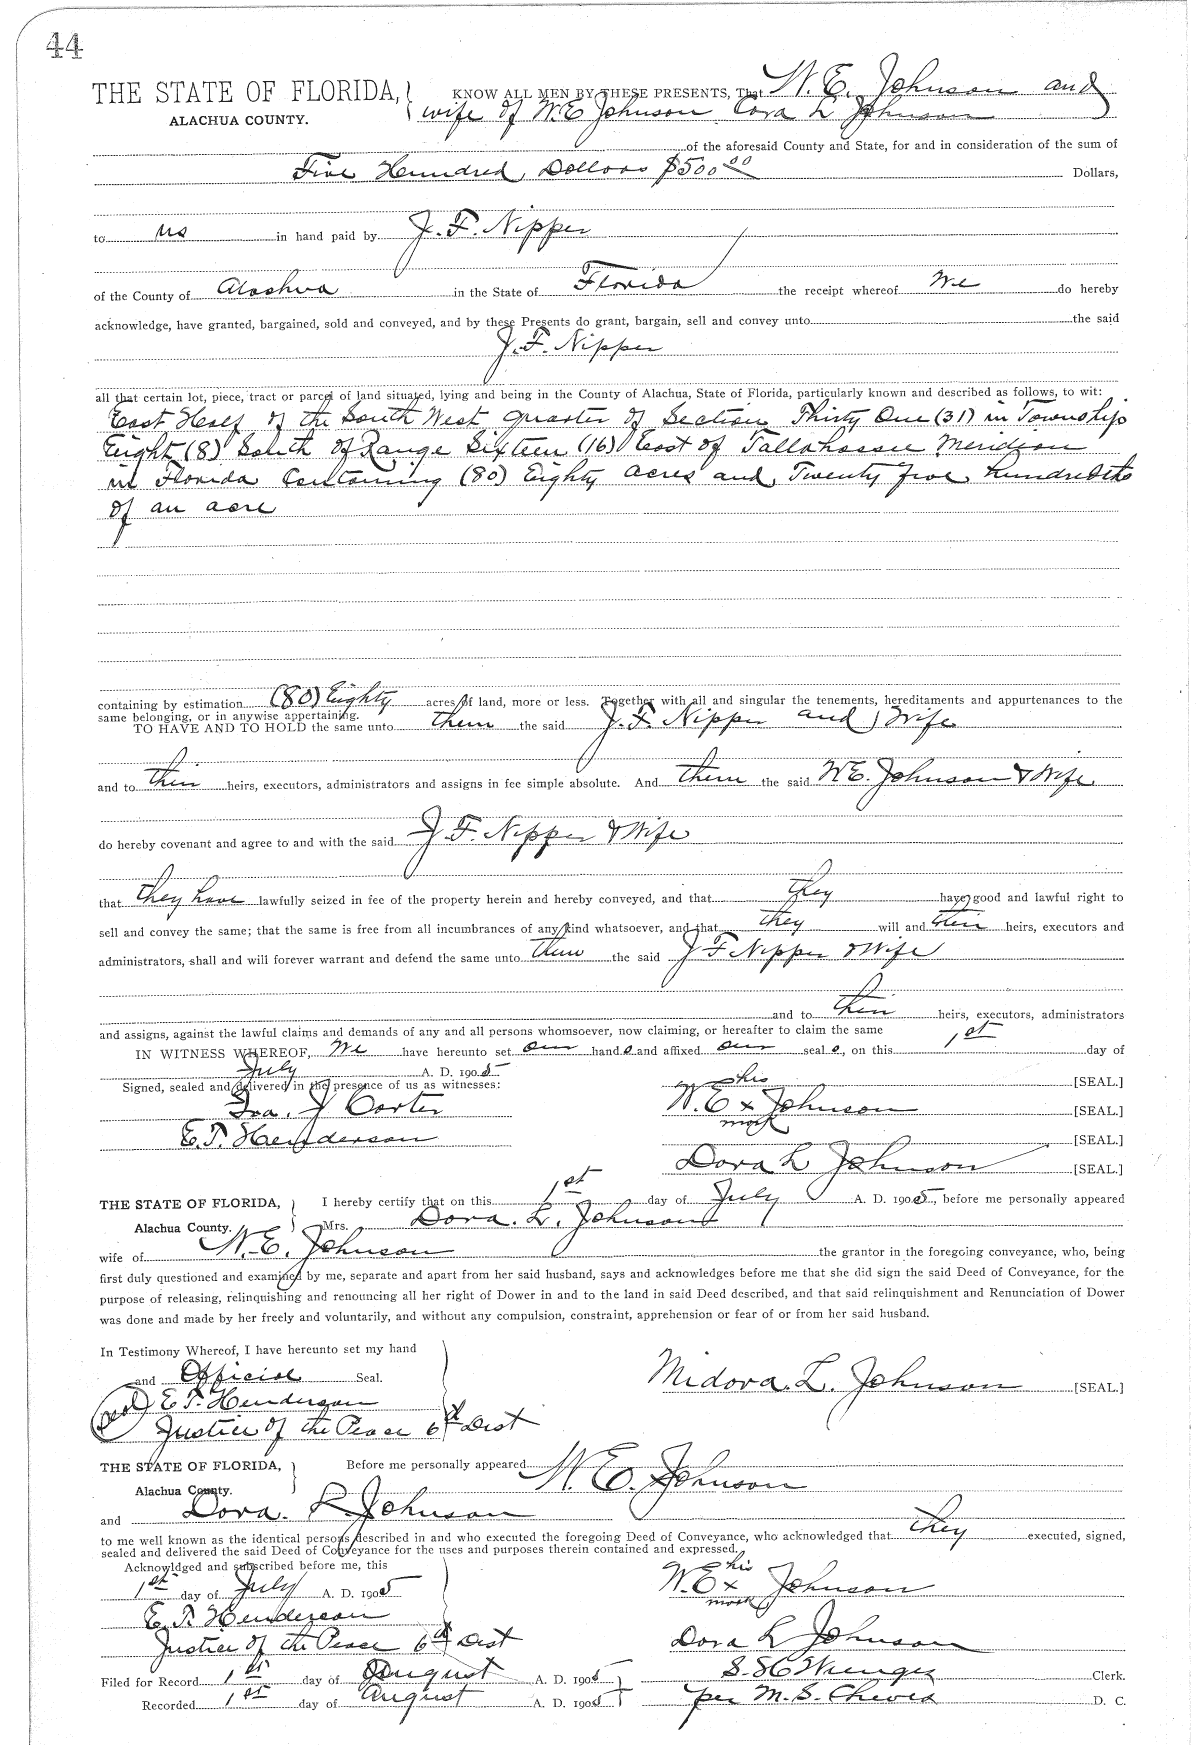 44
THE STATE OF FLORIDA, KNOW ALL MEN BY THESE PRESENTS, That W. E. Johnson and
ALACHUA COUNTY. wife of W. E Johnson Cora L Johnson
of the aforesaid County and State, for and in consideration of the sum of
Five Hundred Dollars $500 00 Dollars,
to us in hand paid by J. F. Nipper
of the County of Alachua in the State of Florida the receipt whereof We do hereby
acknowledge, have granted, bargained, sold and conveyed, and by these Presents do grant, bargain, sell and convey unto the said
J. F. Nipper
all that certain lot, piece, tract or parcel of land situated, lying and being in the County of Alachua, State of Florida, particularly known and described as follows, to wit:
East Half of the South West quarter of Section Thirty One (31) in Township
Eight (8) South of Range Sixteen (16) East of Tallahassee Meridian
in Florida Containing (80) Eighty acres and Twenty five hundredths
of an acre
containing by estimation (80) Eighty acres of land, more or less. Together with all and singular the tenements, hereditaments and appurtenances to the
same belonging, or in anywise appertaining.
TO HAVE AND TO HOLD the same unto them the said J. F. Nipper and Wife
and to their heirs, executors, administrators and assigns in fee simple absolute. And them the said W. E. Johnson & Wife
do hereby covenant and agree to and with the said J. F. Nipper & Wife
that they have lawfully seized in fee of the property herein and hereby conveyed, and that they have good and lawful right to
sell and convey the same; that the same is free from all incumbrances of any kind whatsoever, and that they will and their heirs, executors and
administrators, shall and will forever warrant and defend the same unto them the said J F Nipper & Wife
and to their heirs, executors, administrators
and assigns, against the lawful claims and demands of any and all persons whomsoever, now claiming, or hereafter to claim the same
IN WITNESS WHEREOF, We have hereunto set our hands and affixed our seals, on this 1st day of
July A. D. 1905
Signed, sealed and delivered in the presence of us as witnesses: his [SEAL.]
Ira. J Carter W. E x Johnson [SEAL.]
mark
E. T. Henderson [SEAL.]
Dora L Johnson [SEAL.]
THE STATE OF FLORIDA, I hereby certify that on this 1st day of July A. D. 1905, before me personally appeared
Alachua County. Mrs. Dora. L. Johnson
wife of W. E. Johnson the grantor in the foregoing conveyance, who, being
first duly questioned and examined by me, separate and apart from her said husband, says and acknowledges before me that she did sign the said Deed of Conveyance, for the
purpose of releasing, relinquishing and renouncing all her right of Dower in and to the land in said Deed described, and that said relinquishment and Renunciation of Dower
was done and made by her freely and voluntarily, and without any compulsion, constraint, apprehension or fear of or from her said husband.
In Testimony Whereof, I have hereunto set my hand
and Official Seal. Midora. L. Johnson [SEAL.]
seal E. T. Henderson
Justice of the Peace 6th Dist
THE STATE OF FLORIDA, Before me personally appeared W. E. Johnson
Alachua County.
and Dora. L Johnson
to me well known as the identical persons described in and who executed the foregoing Deed of Conveyance, who acknowledged that they executed, signed,
sealed and delivered the said Deed of Conveyance for the uses and purposes therein contained and expressed.
Acknowldged and subscribed before me, this his
1st day of July A. D. 1905 W. E x Johnson
mark
E. T. Henderson
Justice of the Peace 6th Dist Dora L Johnson
Filed for Record 1st day of August A. D. 1905 Clerk.
Recorded 1st day of August A. D. 1905 per M. S. Cheves D. C.